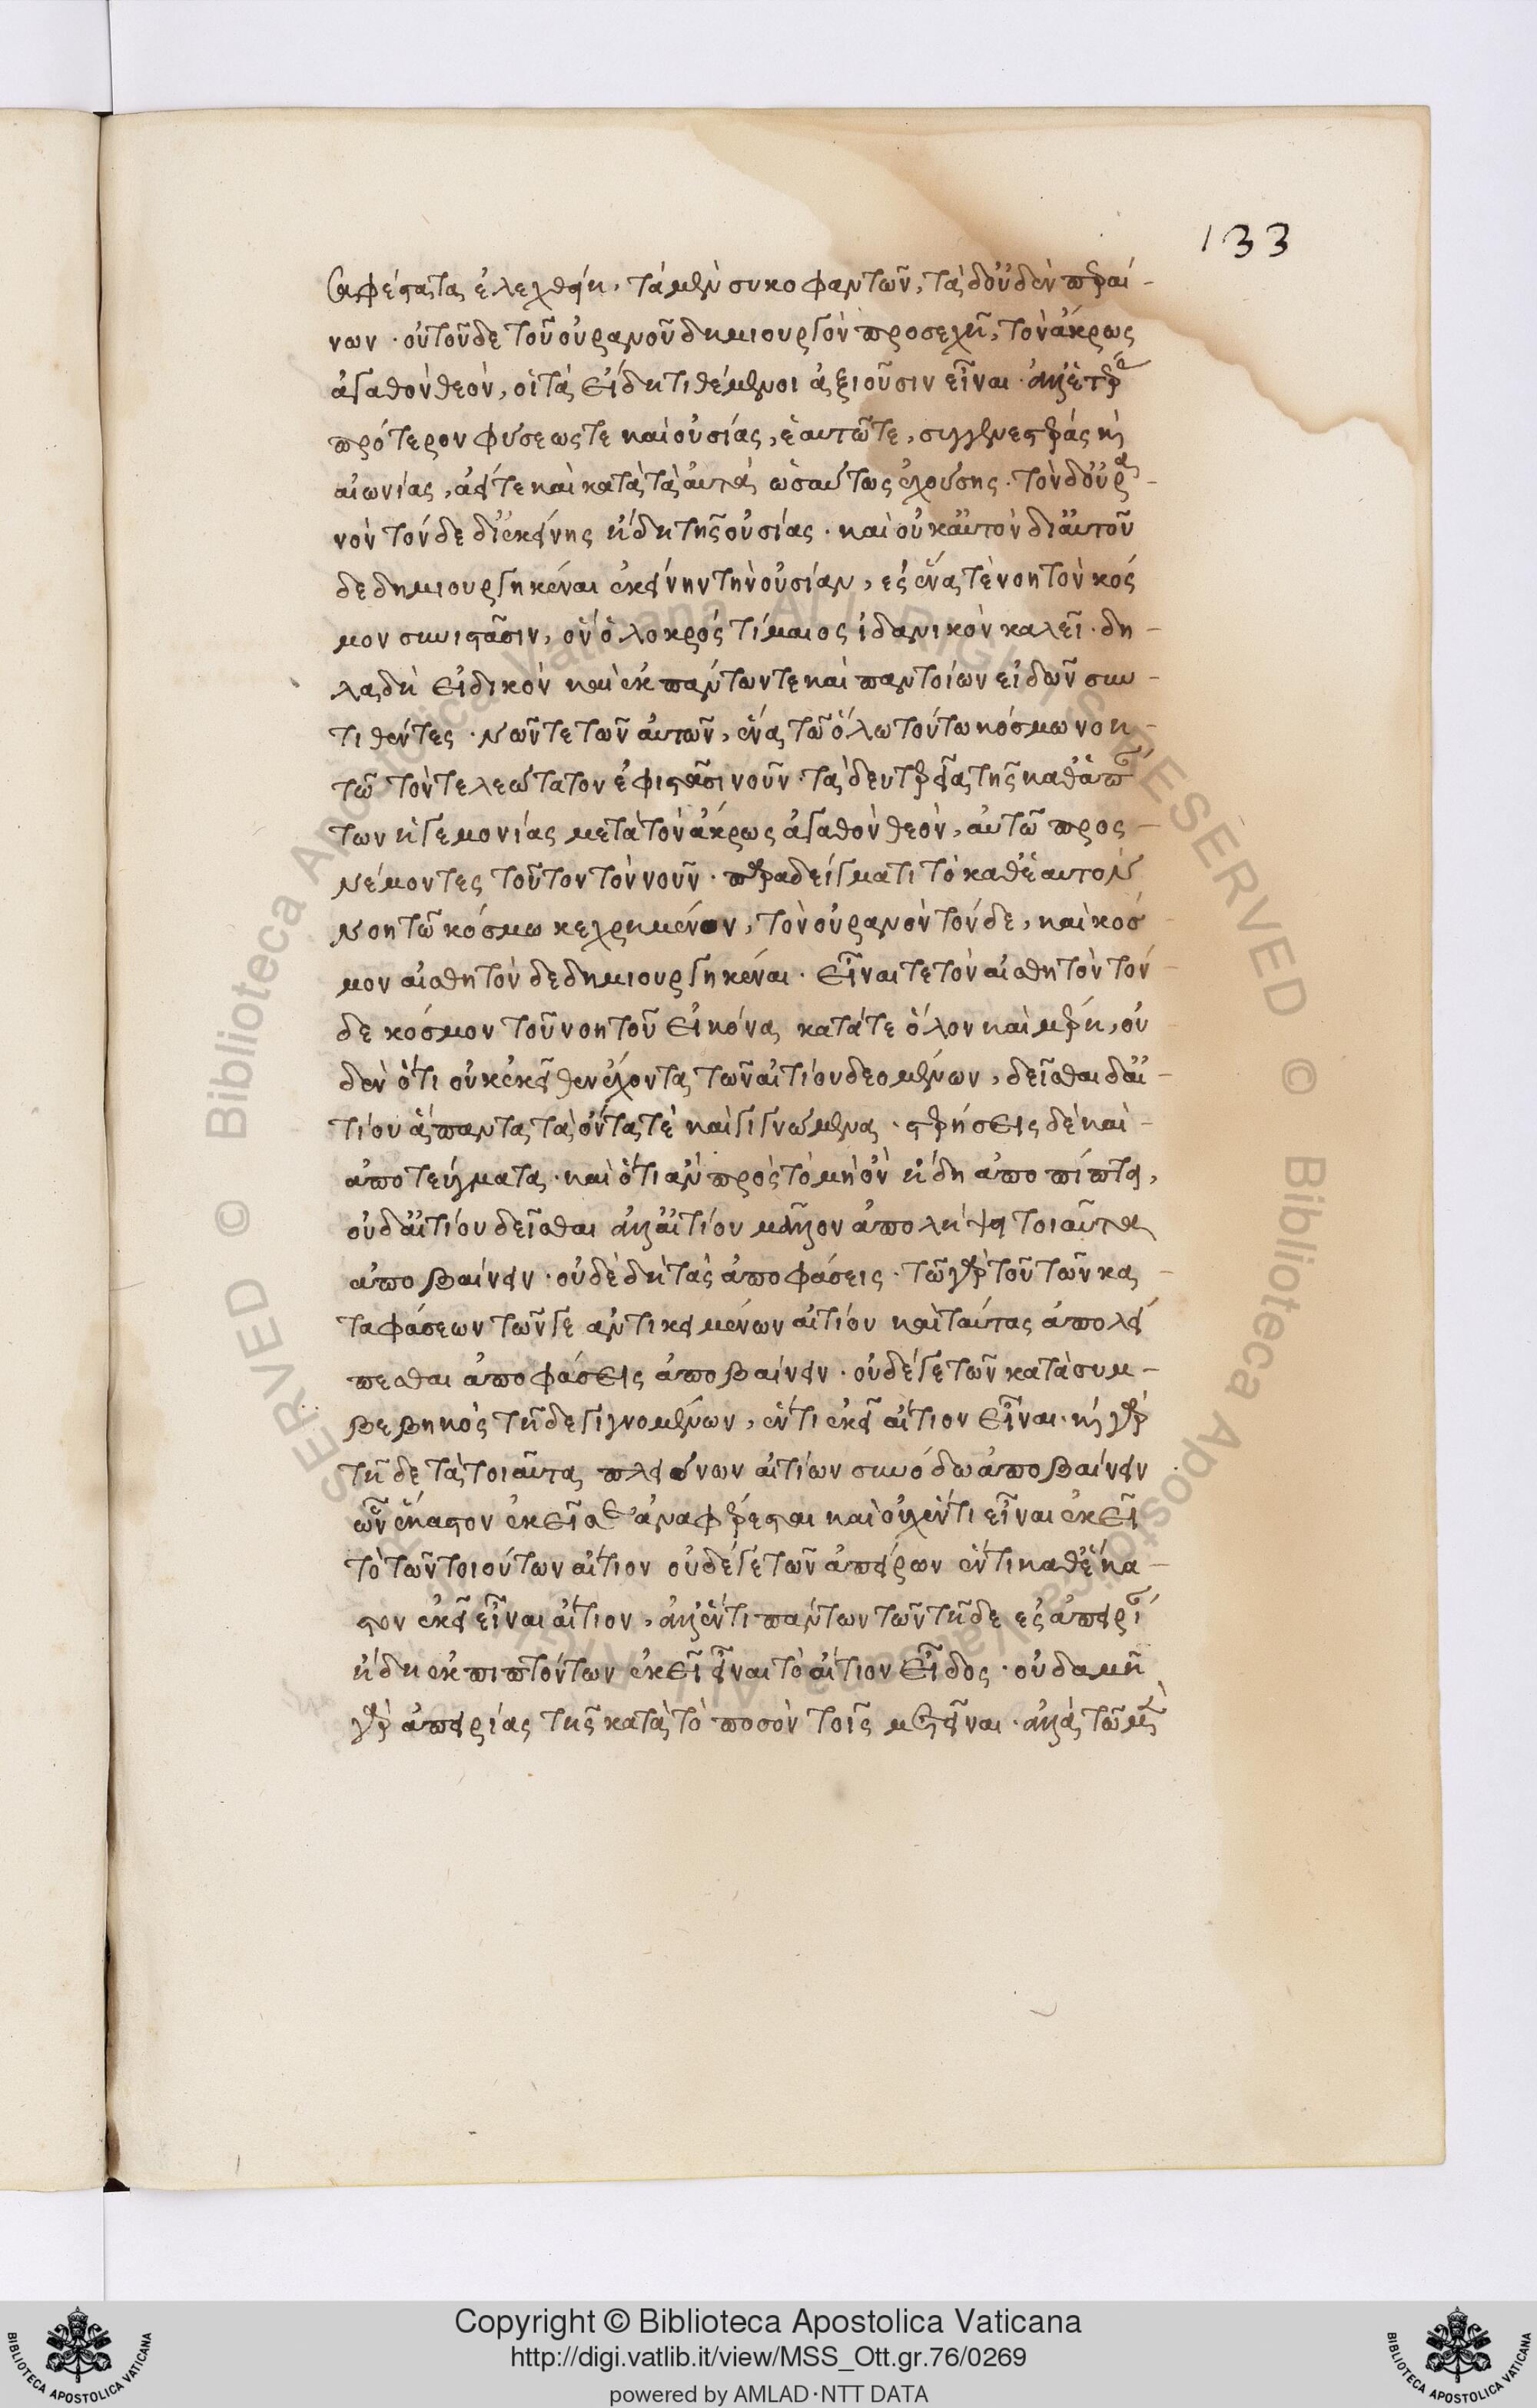 133
σαφέστατα ἐλεγχθείη, τὰ μὲν συκοφαντῶν, τὰ δ' οὐδὲν περαί-
νων. οὐ τοῦδε τοῦ οὐρανοῦ δημιουργὸν προσεχῆ, τὸν ἄκρως
ἀγαθὸν θεὸν, οἱ τὰ εἴδη τιθέμενοι ἀξιοῦσιν εἶναι. ἀλλ' ἑτέρας
πρότερον φύσεώς τε καὶ οὐσίας, ἑαυτῶ τε, συγγενεστέρας καὶ
αἰωνίας, ἀεί τε κατὰ τὰ αὐτὰ ὡσαύτως ἐχούσης. τὸν δ' οὐρα-
νὸν τόνδε δι' ἐκείνης ἤδη τῆς οὐσίας. καὶ οὐκ αὐτὸν δι' αὑτοῦ
δεδημιουργηκέναι ἐκείνην τὴν οὐσίαν, ἐς ἕνα τὲ νοητὸν κόσ
μον συνιστᾶσιν, ὃν ὁ λοκρὸς τίμαιος ἰδανικὸν καλεῖ. δη-
λαδὴ εἰδικὸν καὶ ἐκ πάντων τε καὶ παντοίων εἰδῶν συν-
τιθέντες. νῶν τε τῶν αὐτῶν, ἕνα τῶ ὅλω τούτω κόσμω νοη-
τῶ τὸν τελεώτατον ἐφιστᾶσι νοῦν. τὰ δευτερεῖα τῆς καθ' ἁπάν
των ἡγεμονίας μετὰ τὸν ἄκρως ἀγαθὸν θεὸν, αὐτῶ προσ-
νέμοντες τοῦτον τὸν νοῦν. παραδείγματι τὸ καθ' ἑαυτὸν
νοητῶ κόσμω κεχρημένον, τὸν οὐρανὸν τόνδε, καὶ κόσ
μον αἰσθητὸν δεδημιουργηκέναι. εἶναι τε τὸν αἰσθητὸν τόν
δε κόσμον τοῦ νοητοῦ εἰκόνα κατά τε ὅλον καὶ μέρη, οὐ
δὲν ὅτι οὐκ ἐκεῖθεν ἔχοντα τῶν αἰτίου δεομένων, δεῖσθαι δ' αἰ-
τίου ἅπαντα τὰ ὄντα τὲ καὶ γιγνώμενα. στερήσεις δὲ καὶ
ἀποτεύγματα. καὶ ὅτι ἂν πρὸς τὸ μὴ ὂν ἤδη ἀποπίπτει,
οὐδ' αἰτίου δεῖσθαι ἀλλ' αἰτίου μᾶλλον ἀπολείψει τοιαῦτα
ἀποβαίνειν. οὐδὲ δὴ τὰς ἀποφάσεις. τῶ γὰρ τοῦ τῶν κα-
ταφάσεων τῶν γε ἀντικειμένων αἰτίου καὶ ταύτας ἀπολεί
πεσθαι ἀποφάσεις ἀποβαίνειν. οὐδέ γε τῶν κατὰ συμ-
βεβηκὸς τῆδε γιγνομένων, ἕν τι ἐκεῖ αἴτιον εἶναι. καὶ γὰρ
τῆδε τὰ τοιαῦτα πλειόνων αἰτίων συνόδω ἀποβαίνειν
ὧν ἕκαστον ἐκεῖσε ἀναφέρεσθαι καὶ οὐχ ἕν τι εἶναι ἐκεῖ
τὸ τῶν τοιούτων αἴτιον οὐδέ γε τῶν ἀπείρων ἕν τι καθ' ἕκα-
στον ἐκεῖ εἶναι αἴτιον, ἀλλ' ἕν τι πάντων τῶν τῆδε ἐς ἀπειρίαν
ἤδη ἐκπιπτόντων ἐκεῖ εἶναι τὸ αἴτιον εἶδος. οὐδαμῆ
γὰρ ἀπειρίας τῆς κατὰ τὸ ποσὸν τοῖς μετεῖναι. ἀλλὰ τῶ μὲν
Copyright © Biblioteca Apostolica Vaticana
http://digi.vatlib.it/view/MSS_Ott.gr.76/0269
powered by AMLAD·NTT DATA
BIBLIOTECA APOSTOLICA VATICANA
BIBLIOTECA APOSTOLICA VATICANA